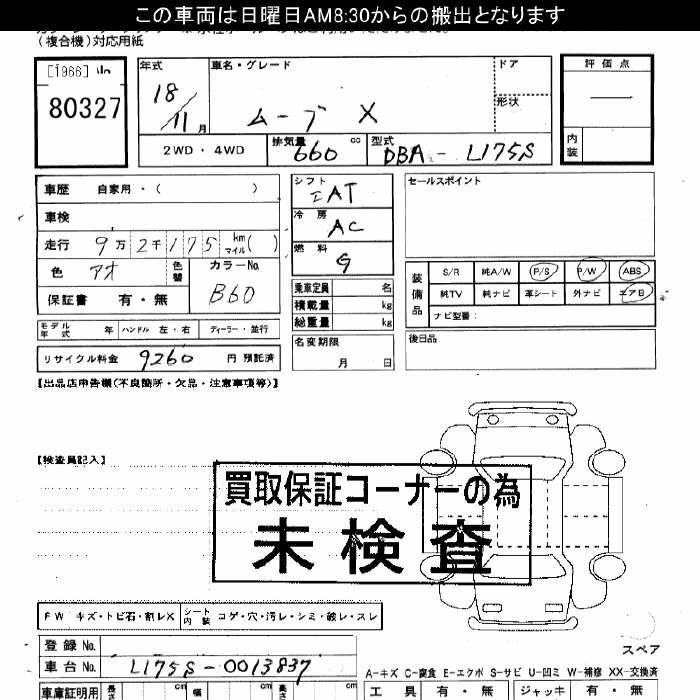 この車両は日曜日AM8:30からの搬出となります
(複合機)対応用紙
[1966]
80327
年式
18/11月
車名・グレード
ムーブ X
ドア
形状
評価点
内装
2WD・4WD
排気量 660 cc
型式 DBA-L175S
車歴 自家用・( )
車検
走行 9万2千175 km マイル( )
色 アオ
色替
カラーNo. B60
保証書 有・無
モデル年式 年 ハンドル 左・右 ディーラー・並行
リサイクル料金 9260 円 預託済
シフト エAT
冷房 AC
燃料 G
乗車定員 名
積載量 kg
総重量 kg
名変期限
月 日
セールスポイント
装備品
S/R 純A/W P/S P/W ABS
純TV 純ナビ 革シート 外ナビ エアB
ナビ型番:
後日品
【出品店申告欄(不良箇所・欠品・注意事項等)】
【検査員記入】
買取保証コーナーの為
未検査
FW キズ・トビ石・割レX
シート内装 コゲ・穴・汚レ・シミ・破レ・スレ
登録No.
車台No. L175S-0013837
車庫証明用 長さ cm 幅 cm 高さ cm
スペア
A-キズ C-腐食 E-エクボ S-サビ U-凹ミ W-補修 XX-交換済
工具 有・無 ジャッキ 有・無